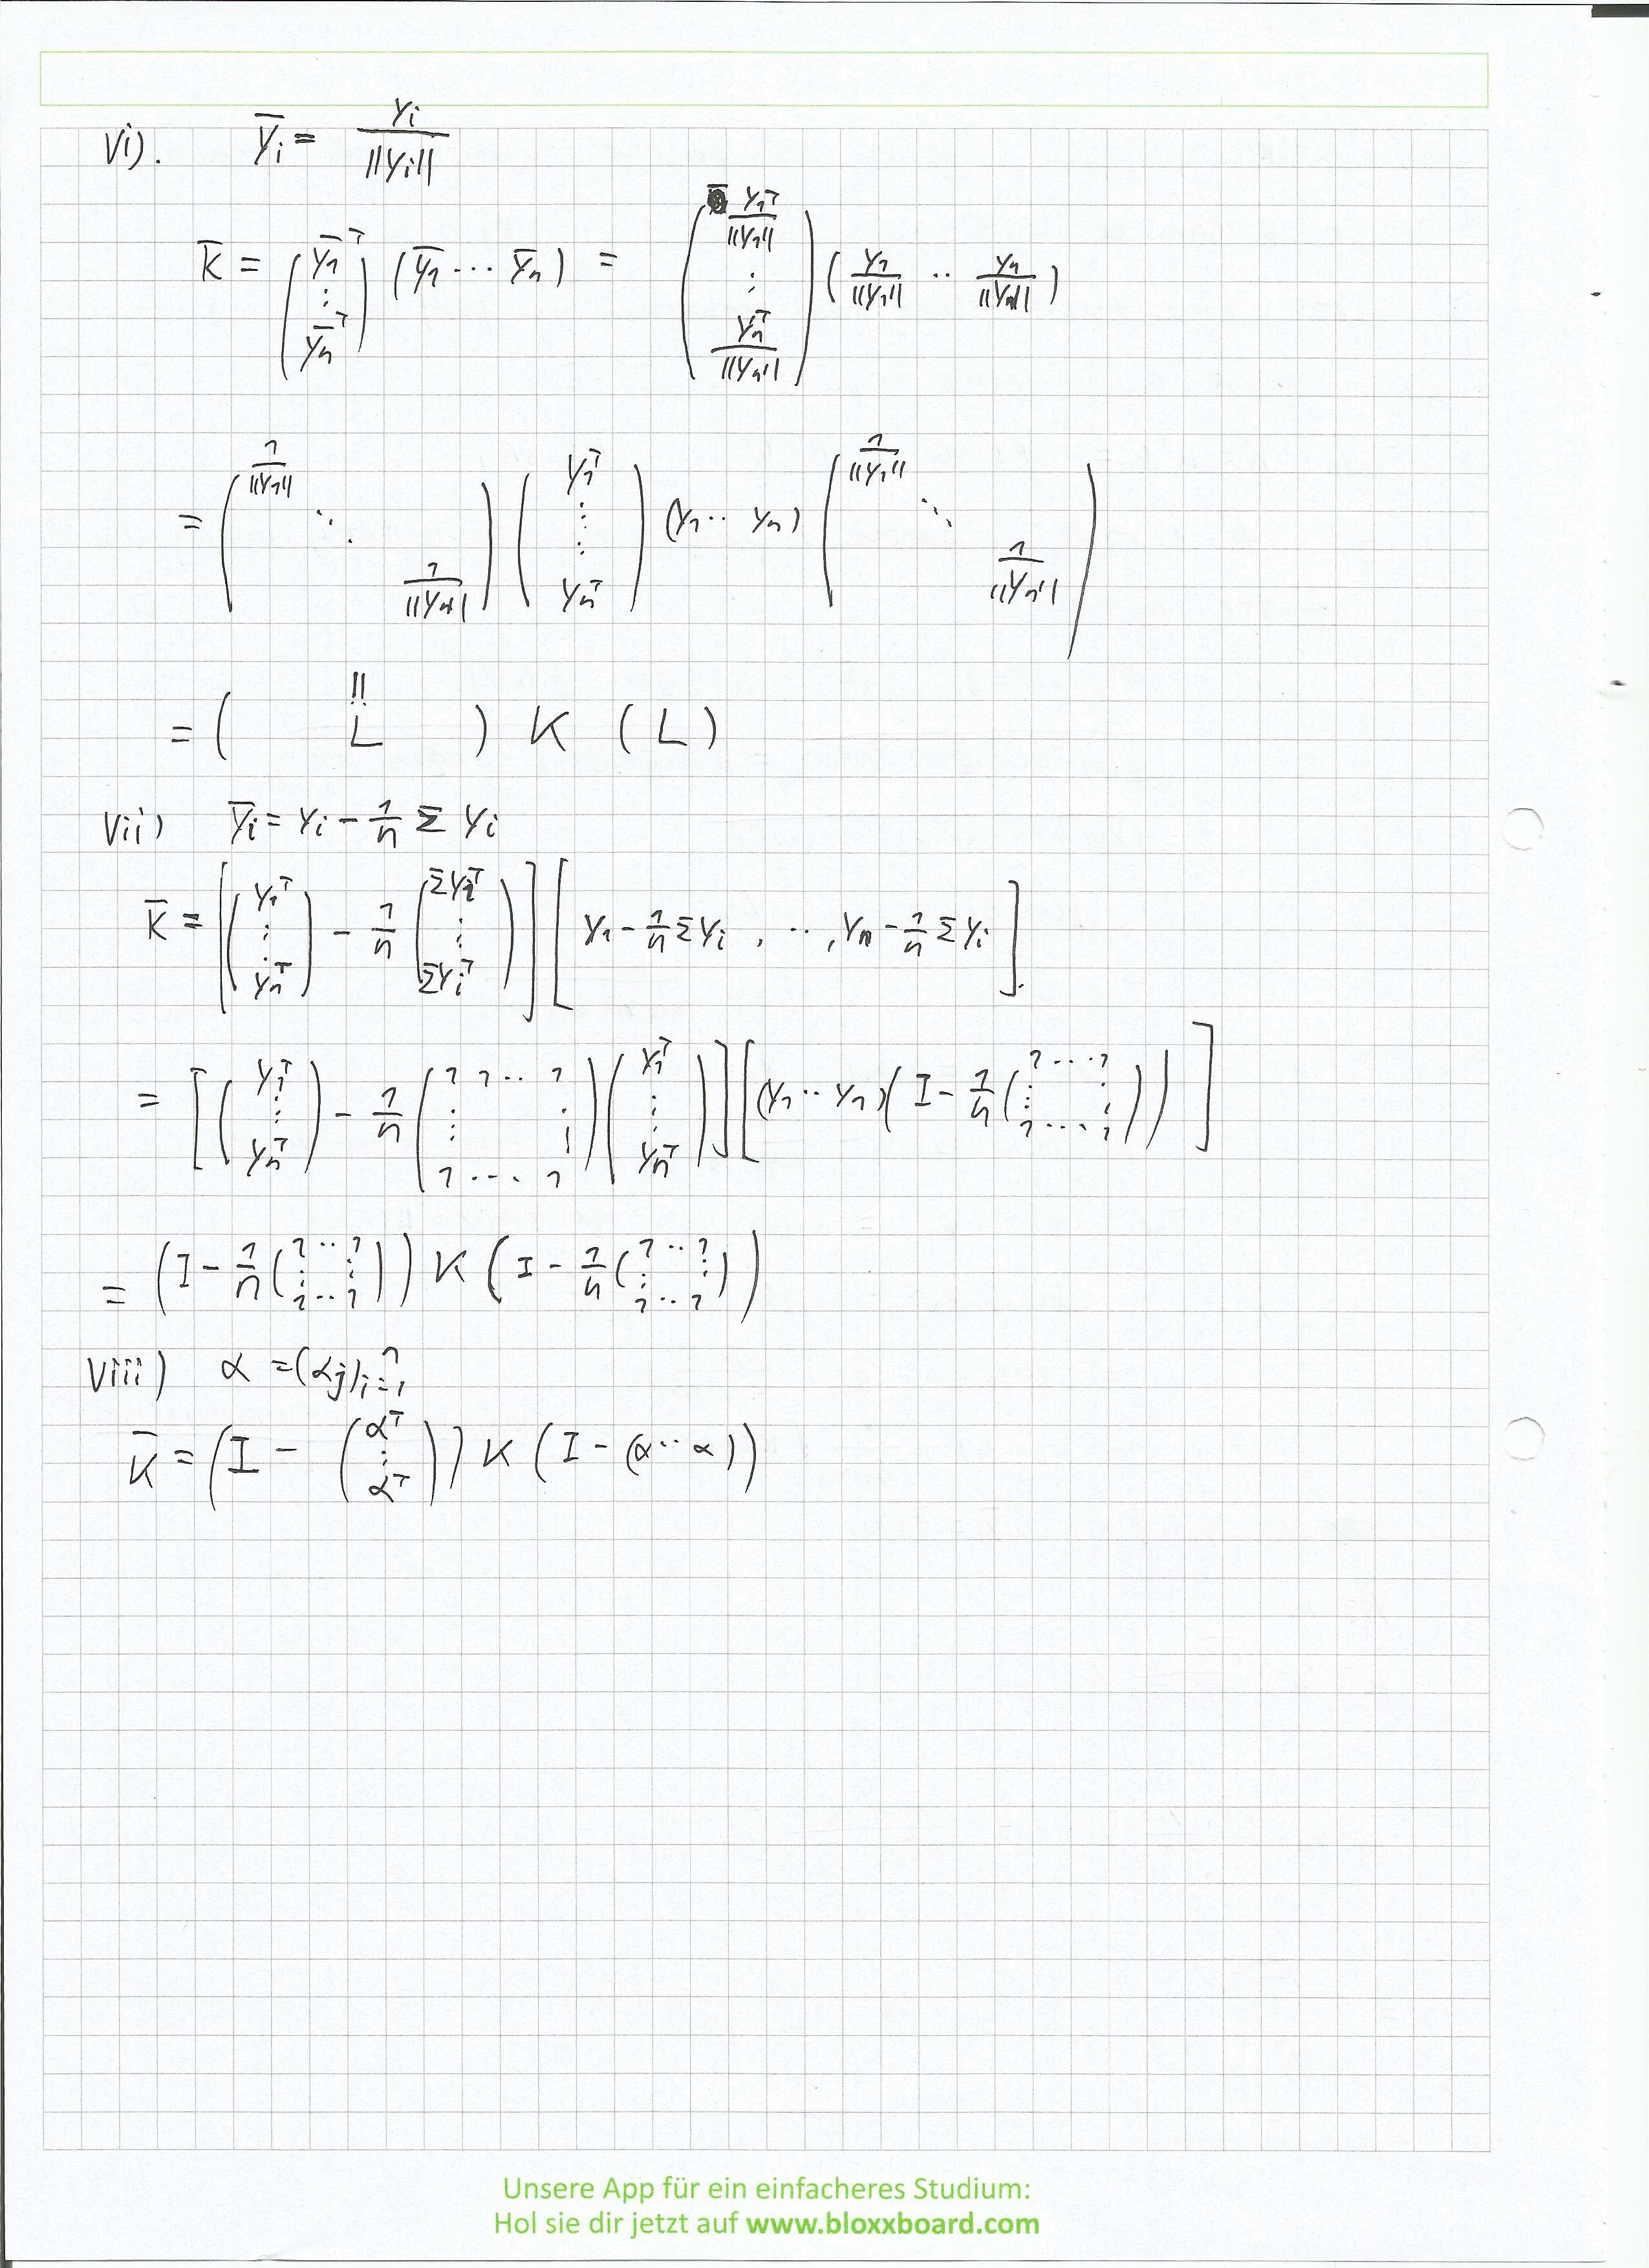 vi). \overline{Y}_i = \frac{Y_i}{||Y_i||}
\overline{K} = \begin{pmatrix} \overline{Y}_1^T \\ \vdots \\ \overline{Y}_n^T \end{pmatrix} (\overline{Y}_1 \cdots \overline{Y}_n) = \begin{pmatrix} \frac{Y_1^T}{||Y_1||} \\ \vdots \\ \frac{Y_n^T}{||Y_n||} \end{pmatrix} (\frac{Y_1}{||Y_1||} \cdot\cdot \frac{Y_n}{||Y_n||})
= \begin{pmatrix} \frac{1}{||Y_1||} & & \\ & \ddots & \\ & & \frac{1}{||Y_n||} \end{pmatrix} \begin{pmatrix} Y_1^T \\ \vdots \\ Y_n^T \end{pmatrix} (Y_1 \cdot\cdot Y_n) \begin{pmatrix} \frac{1}{||Y_1||} & & \\ & \ddots & \\ & & \frac{1}{||Y_n||} \end{pmatrix}
= ( \overset{!!}{L} ) K (L)
vii) \overline{Y}_i = Y_i - \frac{1}{n} \Sigma Y_i
\overline{K} = [\begin{pmatrix} Y_1^T \\ \vdots \\ Y_n^T \end{pmatrix} - \frac{1}{n} \begin{pmatrix} \Sigma Y_i^T \\ \vdots \\ \Sigma Y_i^T \end{pmatrix}] [Y_1 - \frac{1}{n} \Sigma Y_i , \cdots , Y_n - \frac{1}{n} \Sigma Y_i].
= [\begin{pmatrix} Y_1^T \\ \vdots \\ Y_n^T \end{pmatrix} - \frac{1}{n} \begin{pmatrix} 1 & 1 \cdot\cdot & 1 \\ \vdots & & \vdots \\ 1 & \cdots & 1 \end{pmatrix} \begin{pmatrix} Y_1^T \\ \vdots \\ Y_n^T \end{pmatrix}] [(Y_1 \cdot\cdot Y_n)(I - \frac{1}{n} \begin{pmatrix} 1 & \cdots & 1 \\ \vdots & & \vdots \\ 1 & \cdots & 1 \end{pmatrix})]
= (I - \frac{1}{n} \begin{pmatrix} 1 & \cdot\cdot & 1 \\ \vdots & & \vdots \\ 1 & \cdot\cdot & 1 \end{pmatrix}) K (I - \frac{1}{n} \begin{pmatrix} 1 & \cdot\cdot & 1 \\ \vdots & & \vdots \\ 1 & \cdot\cdot & 1 \end{pmatrix})
viii) \alpha = (\alpha_j)_{i=1}^n
\overline{K} = (I - \begin{pmatrix} \alpha^T \\ \vdots \\ \alpha^T \end{pmatrix}) K (I - (\alpha \cdot\cdot \alpha))
Unsere App für ein einfacheres Studium:
Hol sie dir jetzt auf www.bloxxboard.com